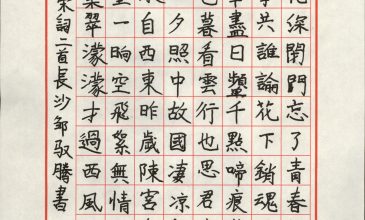 花深閉門忘了青春
共誰論花下銷魂
盡日顰千點啼痕
暮看雲行也思君
夕照中故國淒涼
自西東昨歲陳宮
一晌空飛絮無情
翠濛濛才過西風
宋詞二首長沙鄒馭騰書